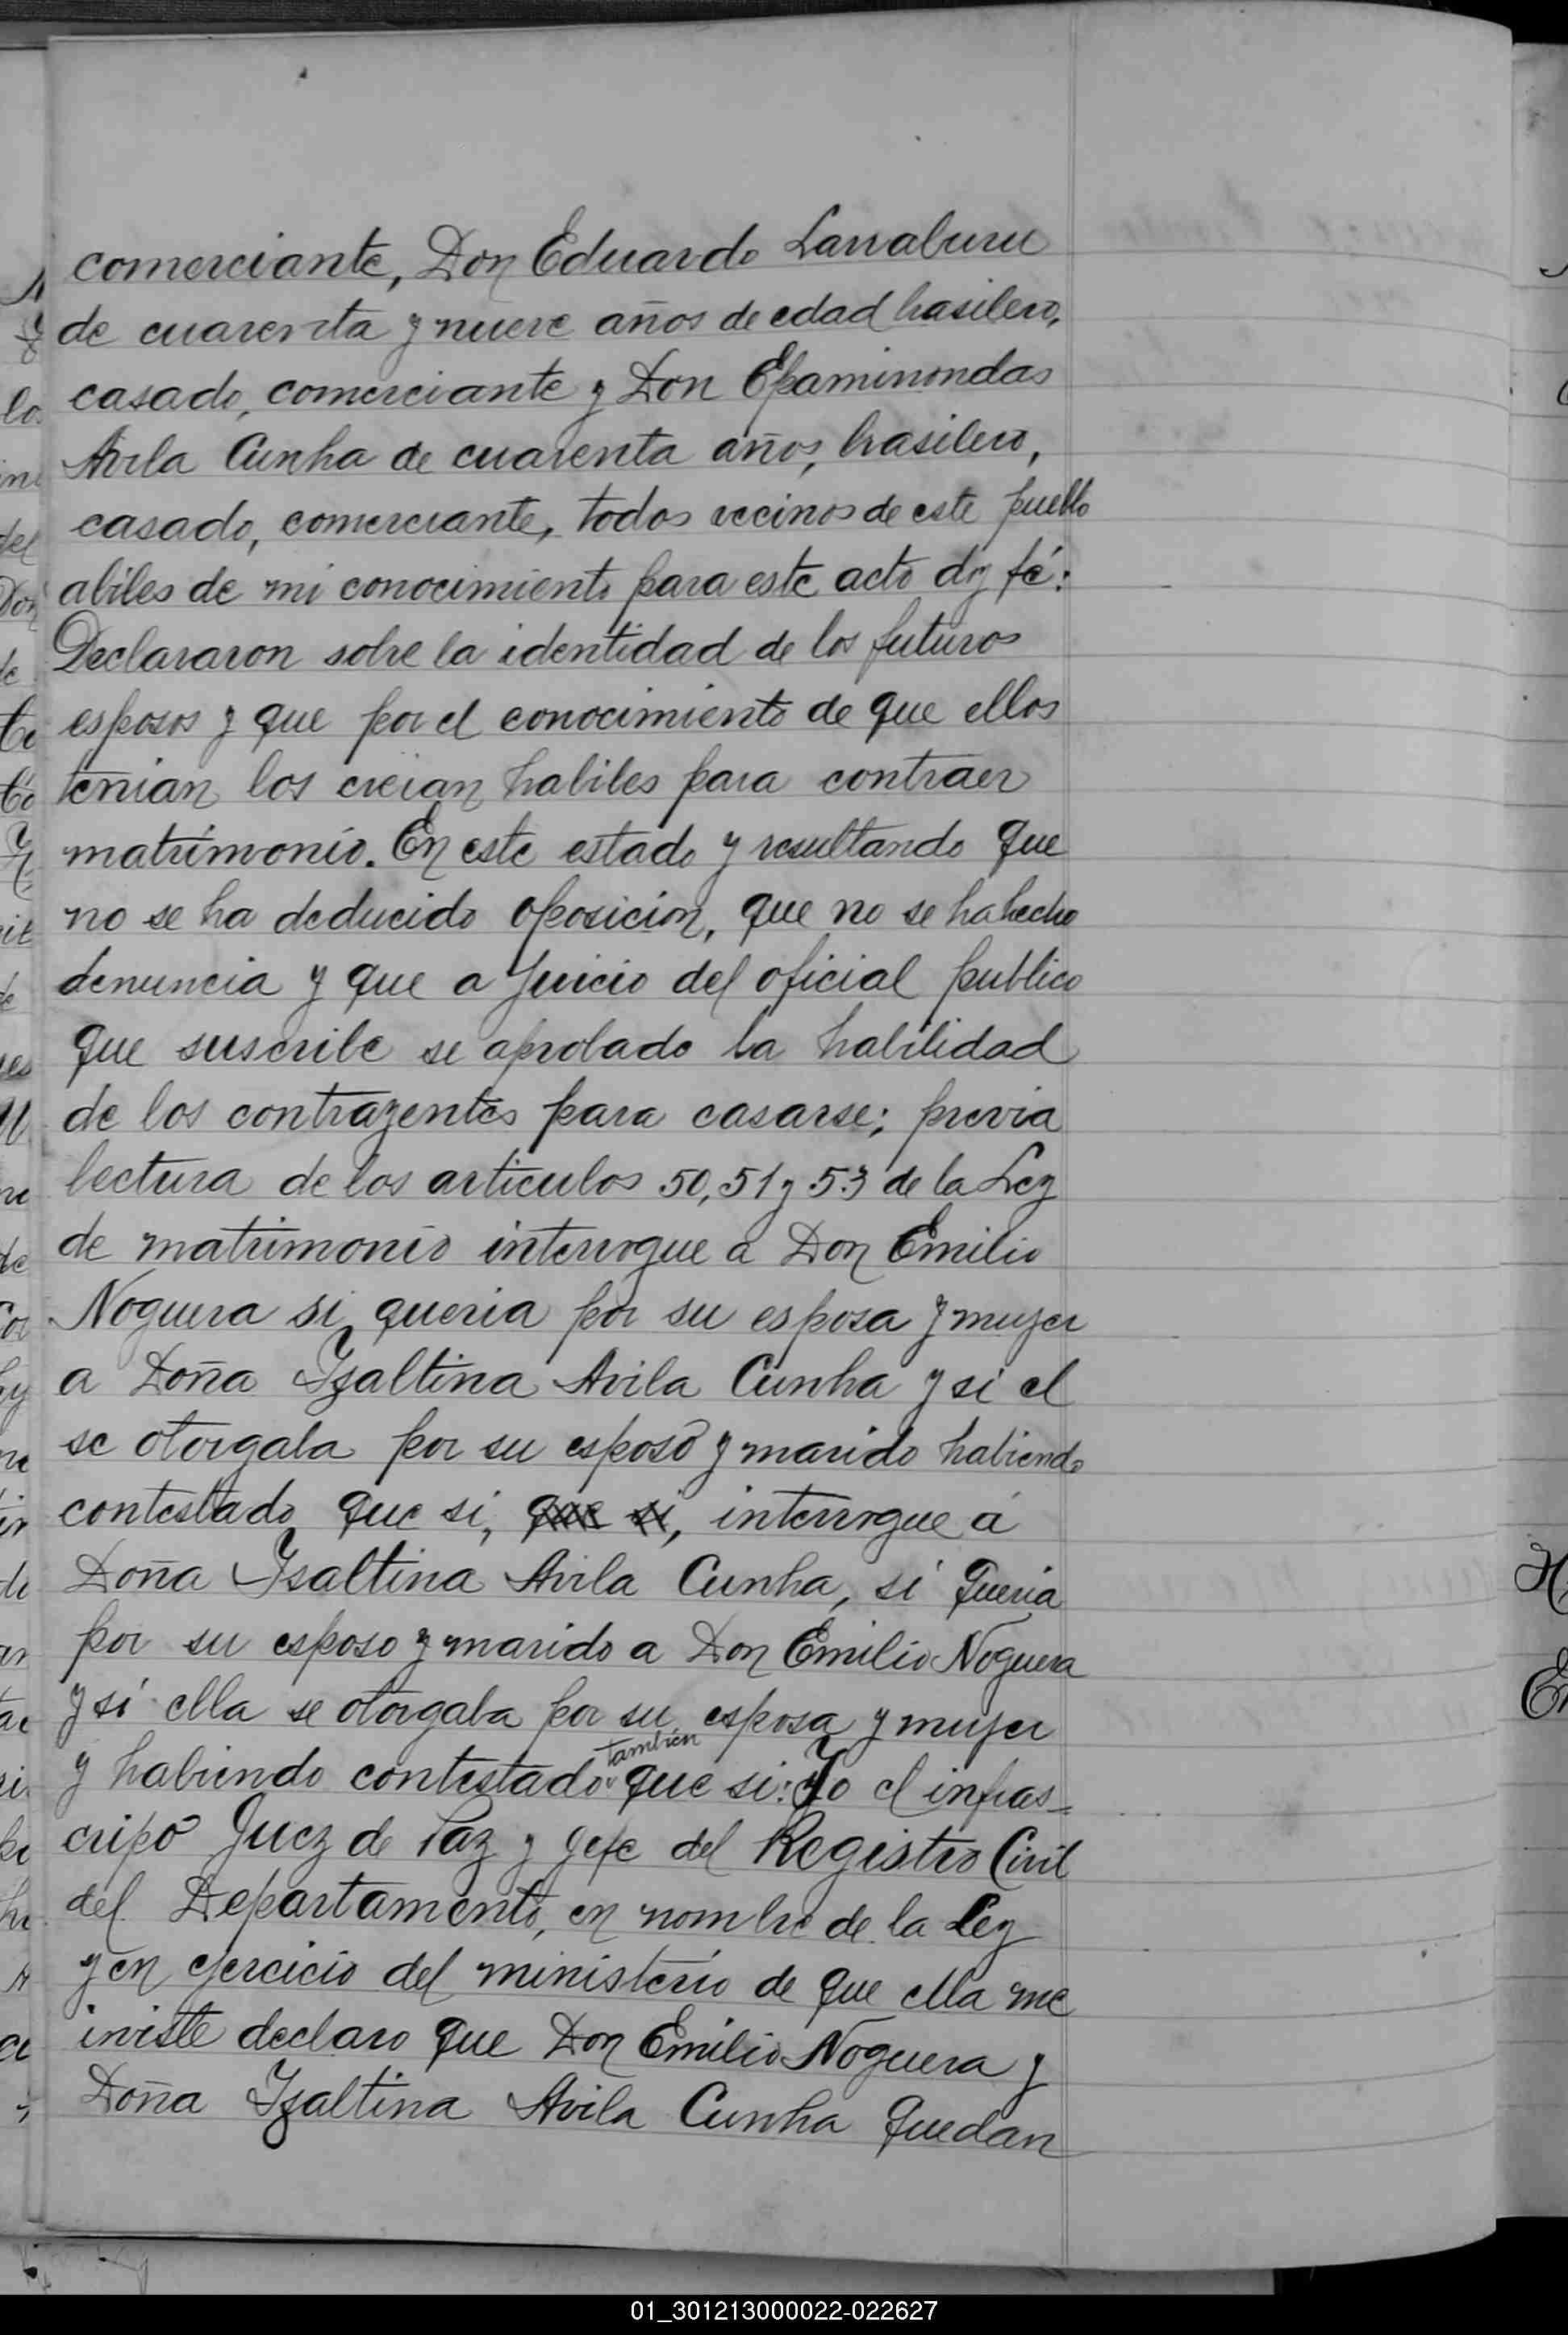 comerciante, Don Eduardo Larraburu
de cuarenta y nueve años de edad brasilero,
casado, comerciante y Don Epaminondas
Avila Cunha de cuarenta años, brasilero,
casado, comerciante, todos vecinos de este pueblo
abiles de mi conocimiento para este acto doy fé:
Declararon sobre la identidad de los futuros
esposos y que por el conocimiento de que ellos
tenian los creian habiles para contraer
matrimonio. En este estado y resultando que
no se ha deducido oposicion, que no se ha hecho
denuncia y que a juicio del oficial publico
que suscribe se aprobado la habilidad
de los contrayentes para casarse; previa
lectura de los articulos 50, 51 y 53 de la Ley
de matrimonio interrogue a Don Emilio
Noguera si queria por su esposa y mujer
a Doña Izaltina Avila Cunha y si el
se otorgaba por su esposo y marido habiendo
contestado que si, que si, interrogue á
Doña Isaltina Avila Cunha, si queria
por su esposo y marido a Don Emilio Noguera
y si ella se otorgaba por su esposa y mujer
y habiendo contestado tambien que si: Yo el infras-
cripo Juez de Paz y Jefe del Registro Civil
del Departamento, en nombre de la Ley
y en ejercicio del ministerio de que ella me
inviste declaro que Don Emilio Noguera y
Doña Izaltina Avila Cunha quedan
01_301213000022-022627